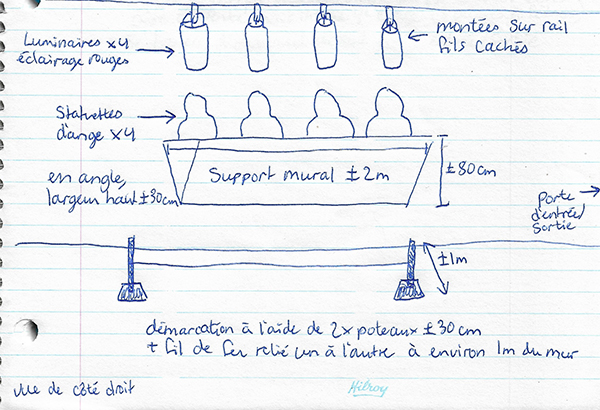 Luminaires x4
éclairage rouges
montées sur rail
fils cachés
Statuettes
d'ange x4
en angle,
largeur haut ±30cm
Support mural ±2m
±80cm
Porte
d'entrée/
sortie
±1m
démarcation à l'aide de 2x poteaux ±30cm
+ fil de fer relié un à l'autre à environ 1m du mur
vue de côté droit
Hilroy